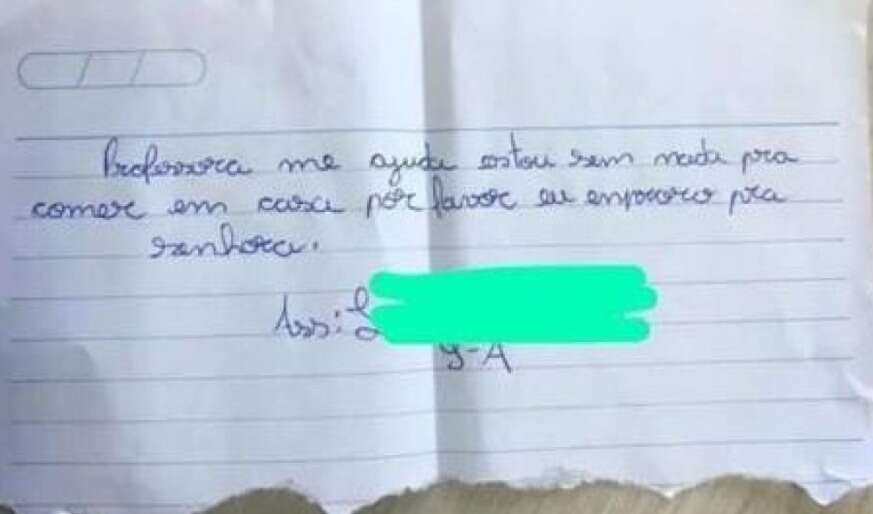 Professora me ajuda estou sem nada pra
comer em casa por favor eu emploro pra
senhora.
Ass: L
9-A